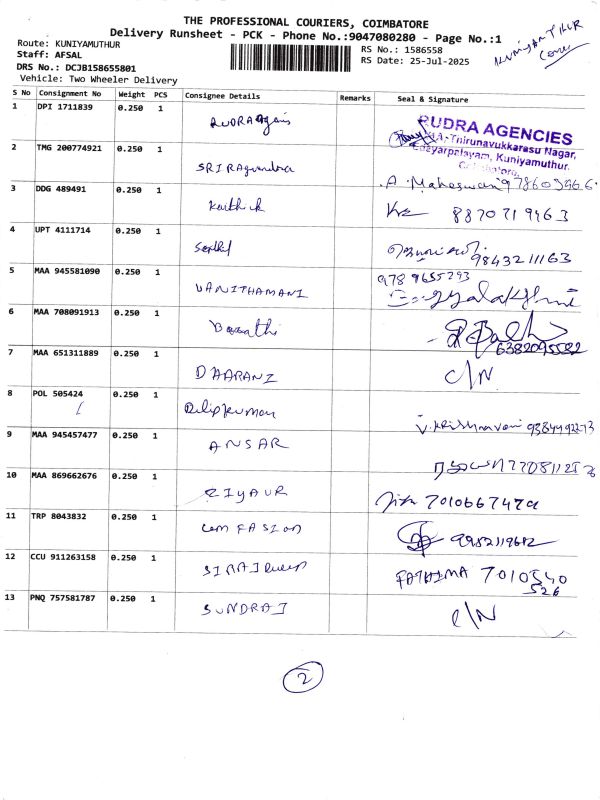 THE PROFESSIONAL COURIERS, COIMBATORE
Delivery Runsheet - PCK - Phone No.:9047080280 - Page No.:1
Route: KUNIYAMUTHUR
Staff: AFSAL
RS No.: 1586558
DRS No.: DCJB158655801
RS Date: 25-Jul-2025
Vehicle: Two Wheeler Delivery
S No Consignment No Weight PCS Consignee Details Remarks Seal & Signature
1 DPI 1711839 0.250 1 RUDRA
RUDRA AGENCIES
Thirunavukkarasu Nagar,
Kuniyamuthur.
2 TMG 200774921 0.250 1 SRI Ragavendra A. Maheswari
3 DDG 489491 0.250 1 Karthick 8870719963
4 UPT 4111714 0.250 1 9843211163
5 MAA 945581090 0.250 1 VANITHAMANI 9789655293
6 MAA 708091913 0.250 1 6382095582
7 MAA 651311889 0.250 1 DAARANI C/N
8 POL 505424 0.250 1 Dilipkumar
9 MAA 945457477 0.250 1 ANSAR
10 MAA 869662676 0.250 1 ZIYAUR
11 TRP 8043832 0.250 1
12 CCU 911263158 0.250 1 FATHIMA 7010540
526
13 PNQ 757581787 0.250 1 SUNDRAJ C/N
2